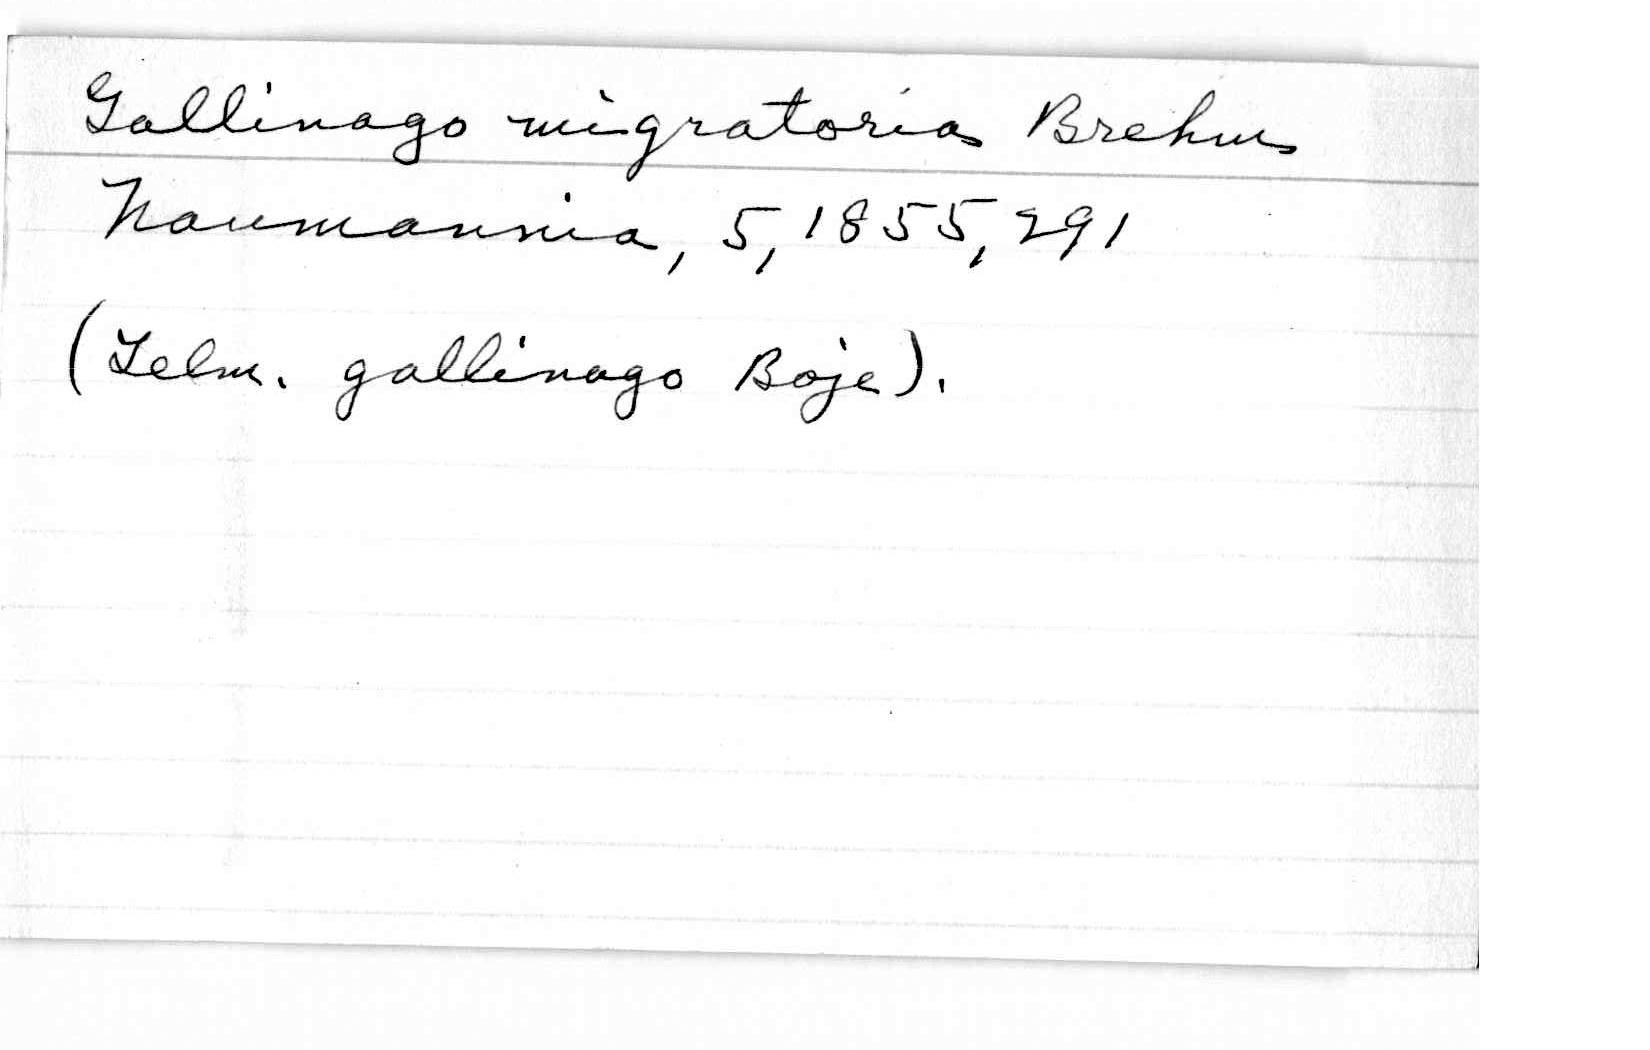 Gallinago migratoria Brehm
Naumannia, 5, 1855, 291
(Telm. gallinago Boje).